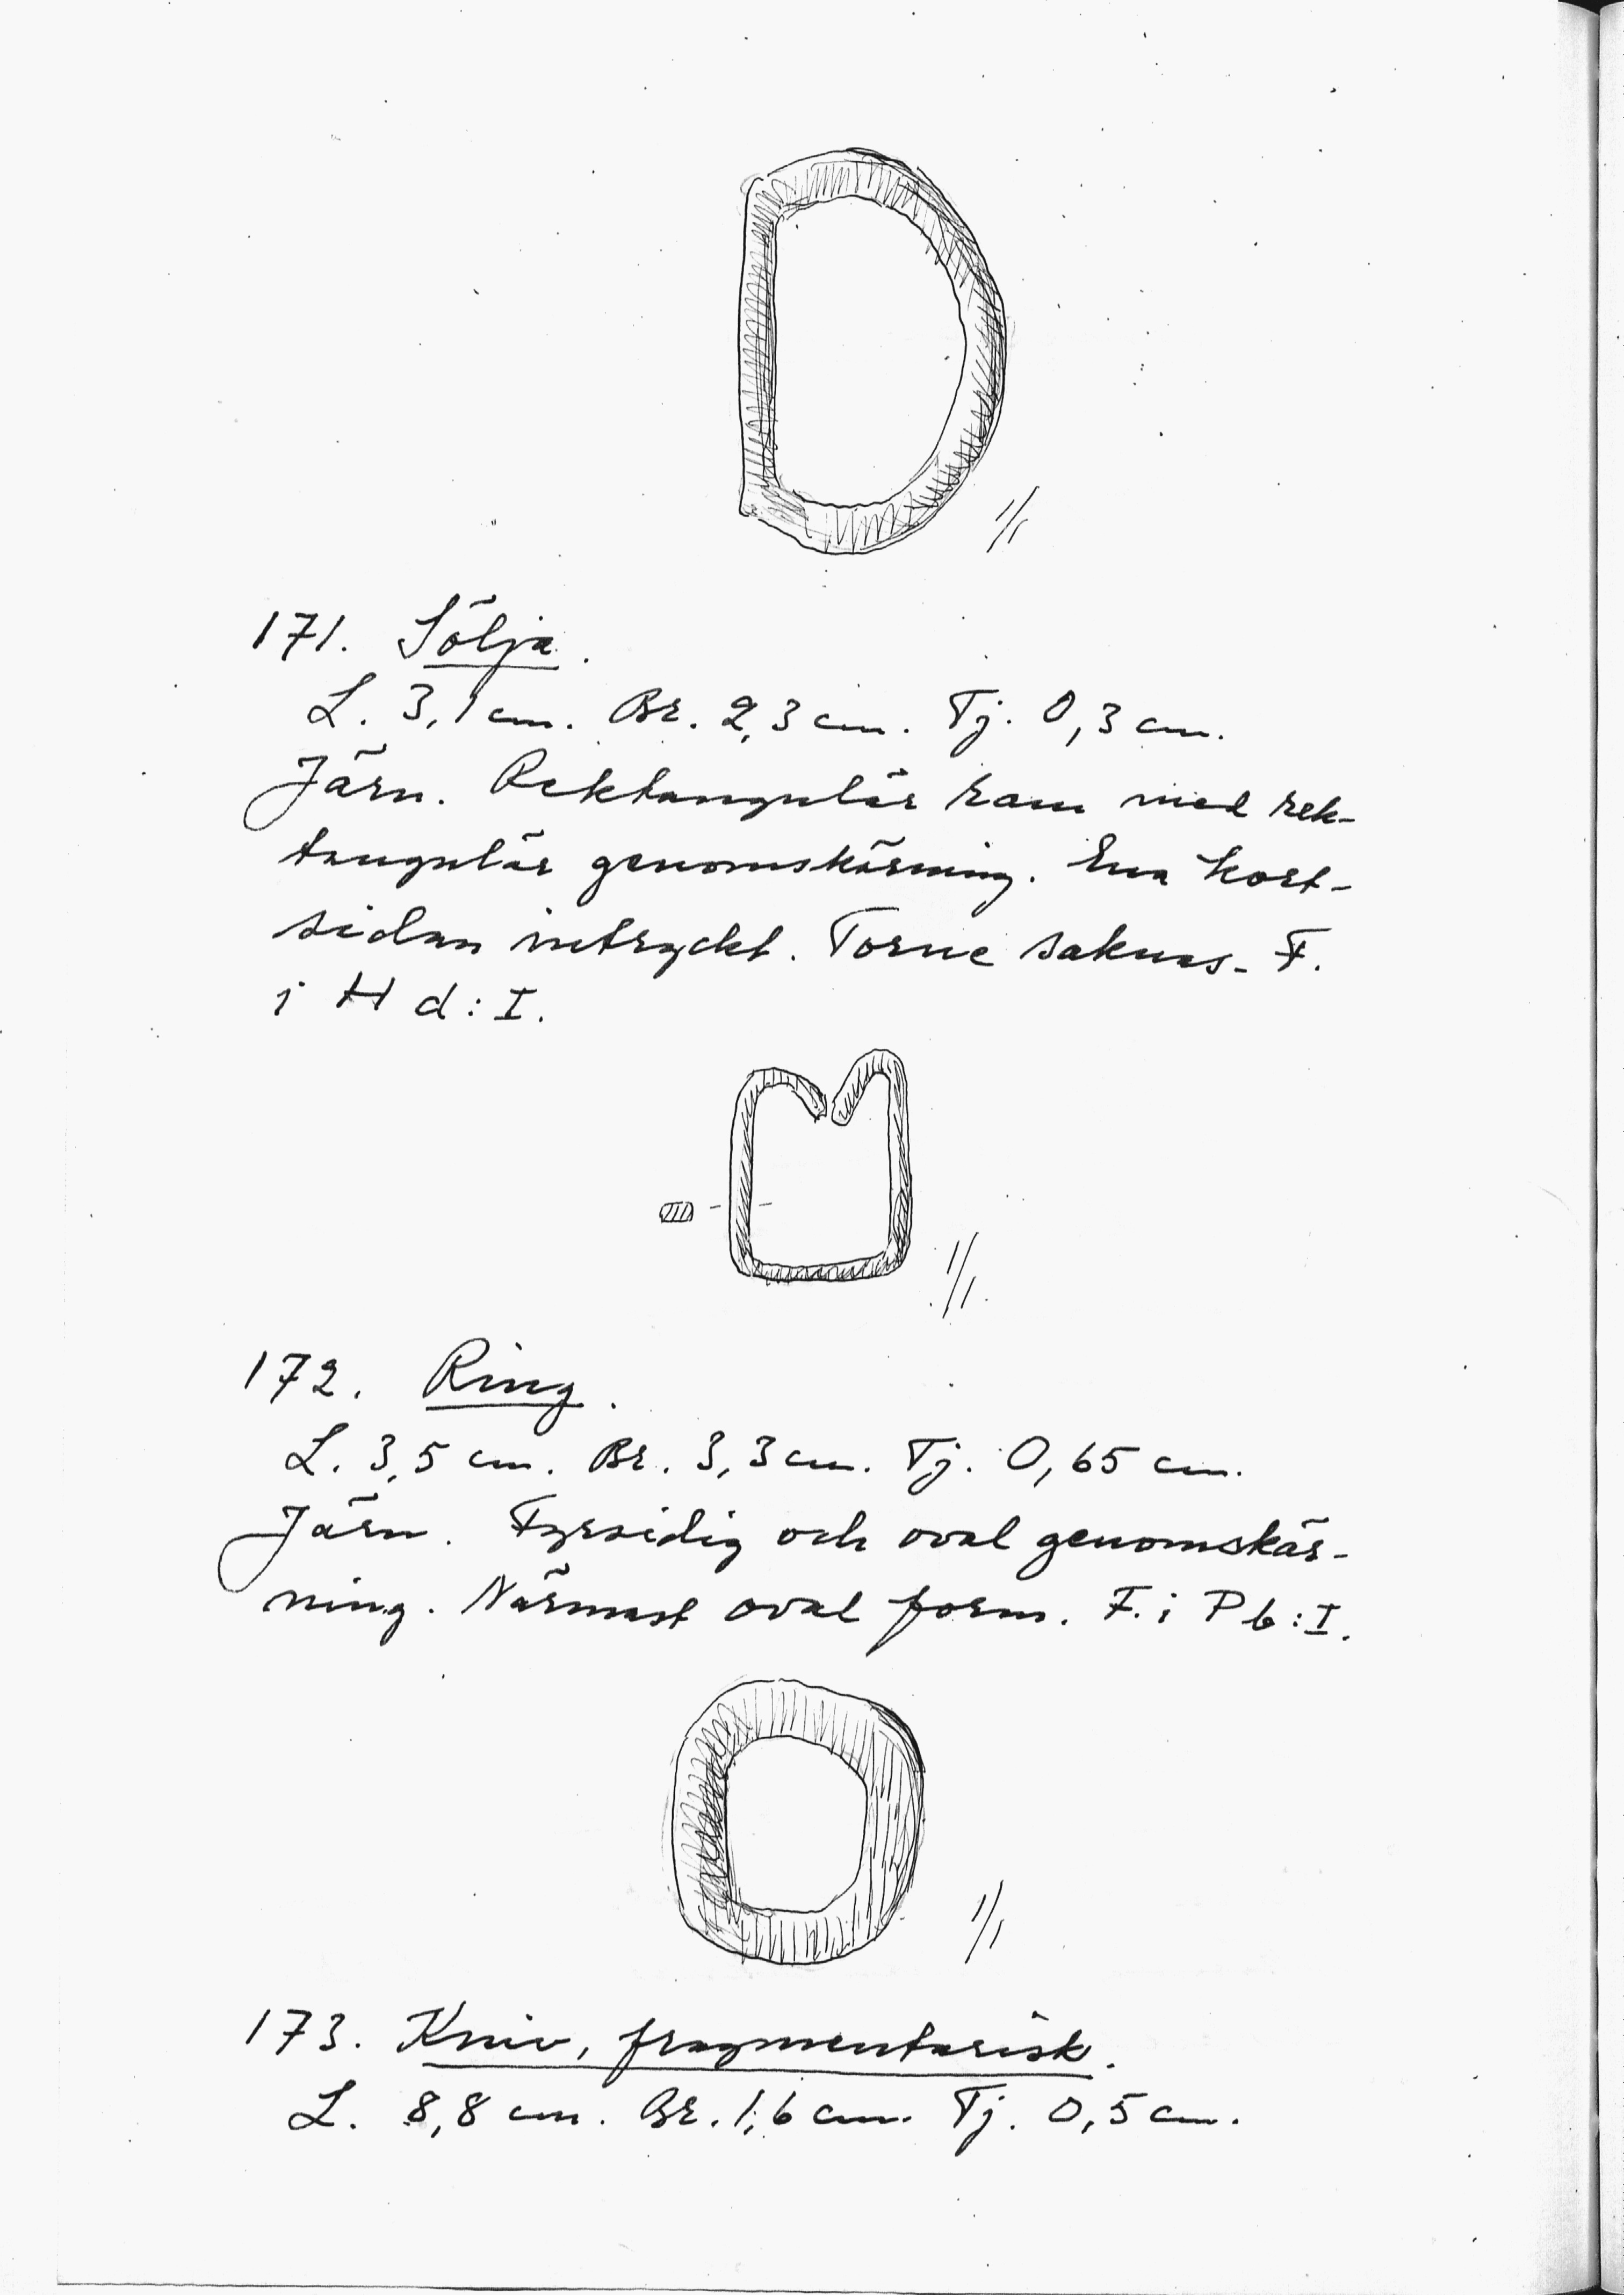 1/1
171. Sölja.
L. 3,1 cm. Br. 2,3 cm. Tj. 0,3 cm.
Järn. Rektangulär ram med rek-
tangulär genomskärning. Ena kort-
sidan intryckt. Torne saknas. F.
i H d:I.
1/1
172. Ring.
L. 3,5 cm. Br. 3,3 cm. Tj. 0,65 cm.
Järn. Fyrsidig och oval genomskär-
ning. Närmast oval form. F. i P b:I.
1/1
173. Kniv, fragmentarisk.
L. 8,8 cm. Br. 1,6 cm. Tj. 0,5 cm.